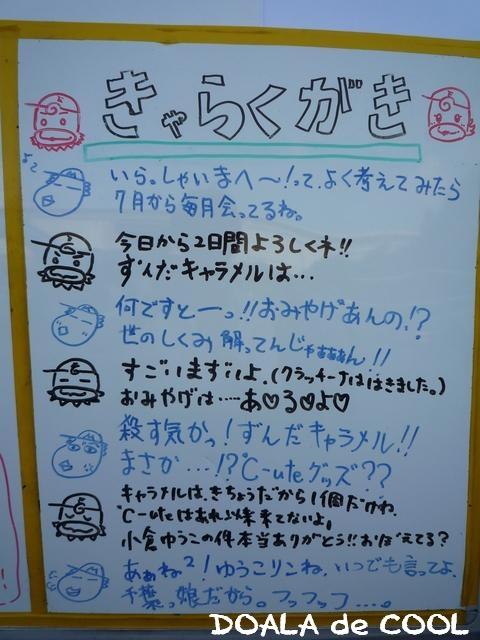 きゃらくがき
いらっしゃいまへ〜!って、よく考えてみたら
7月から毎月会ってるね。
今日から2日間よろしくネ!!
ずんだキャラメルは…
何ですとーっ!!おみやげあんの!?
世のしくみ解ってんじゃぁぁぁん!!
すごいまずいよ。(クラッチーナははきました。)
おみやげは……あ♡る♡よ♡
殺す気かっ!ずんだキャラメル!!
まさか…!?℃-uteグッズ??
キャラメルは、きちょうだから1個だけね。
℃-uteはあれ以来来てないよ。
小倉ゆうこの件本当ありがとう!!おぼえてる?
あぁね²!ゆうこリンね、いつでも言ってよ、
千葉っ娘だから。フッフッフ…。
DOALA de COOL